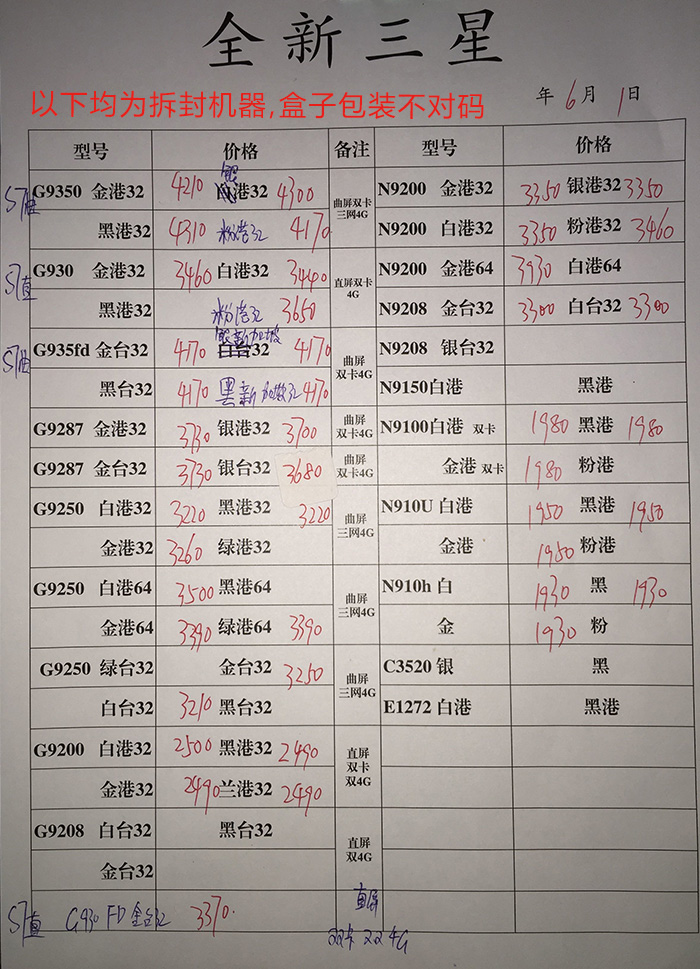 全新三星
以下均为拆封机器,盒子包装不对码
年 6月 1日
型号 价格 备注 型号 价格
S7曲 G9350 金港32 4210 银港32 4300 曲屏双卡 三网4G N9200 金港32 3350 银港32 3350
黑港32 4310 粉港32 4170 N9200 白港32 3350 粉港32 3460
S7直 G930 金港32 3460 白港32 3440 直屏双卡 4G N9200 金港64 3930 白港64
黑港32 粉港32 3650 N9208 金台32 3300 白台32 3300
S7曲 G935fd 金台32 4170 银新加坡 白台32 4170 曲屏 双卡4G N9208 银台32
黑台32 4170 黑新加坡32 4170 N9150白港 黑港
G9287 金港32 3730 银港32 3700 曲屏 双卡4G N9100白港 双卡 1980 黑港 1980
G9287 金台32 3730 银台32 3680 曲屏 双卡4G 金港 双卡 1980 粉港
G9250 白港32 3220 黑港32 3220 曲屏 三网4G N910U 白港 1950 黑港 1950
金港32 3260 绿港32 金港 1950 粉港
G9250 白港64 3500 黑港64 曲屏 三网4G N910h 白 1930 黑 1930
金港64 3390 绿港64 3390 金 1930 粉
G9250 绿台32 金台32 3250 曲屏 三网4G C3520 银 黑
白台32 3210 黑台32 E1272 白港 黑港
G9200 白港32 2500 黑港32 2490 直屏 双卡 双4G
金港32 2490 兰港32 2490
G9208 白台32 黑台32 直屏 双4G
金台32
S7直 G930 FD 金台32 3370. 直屏
双卡 双4G